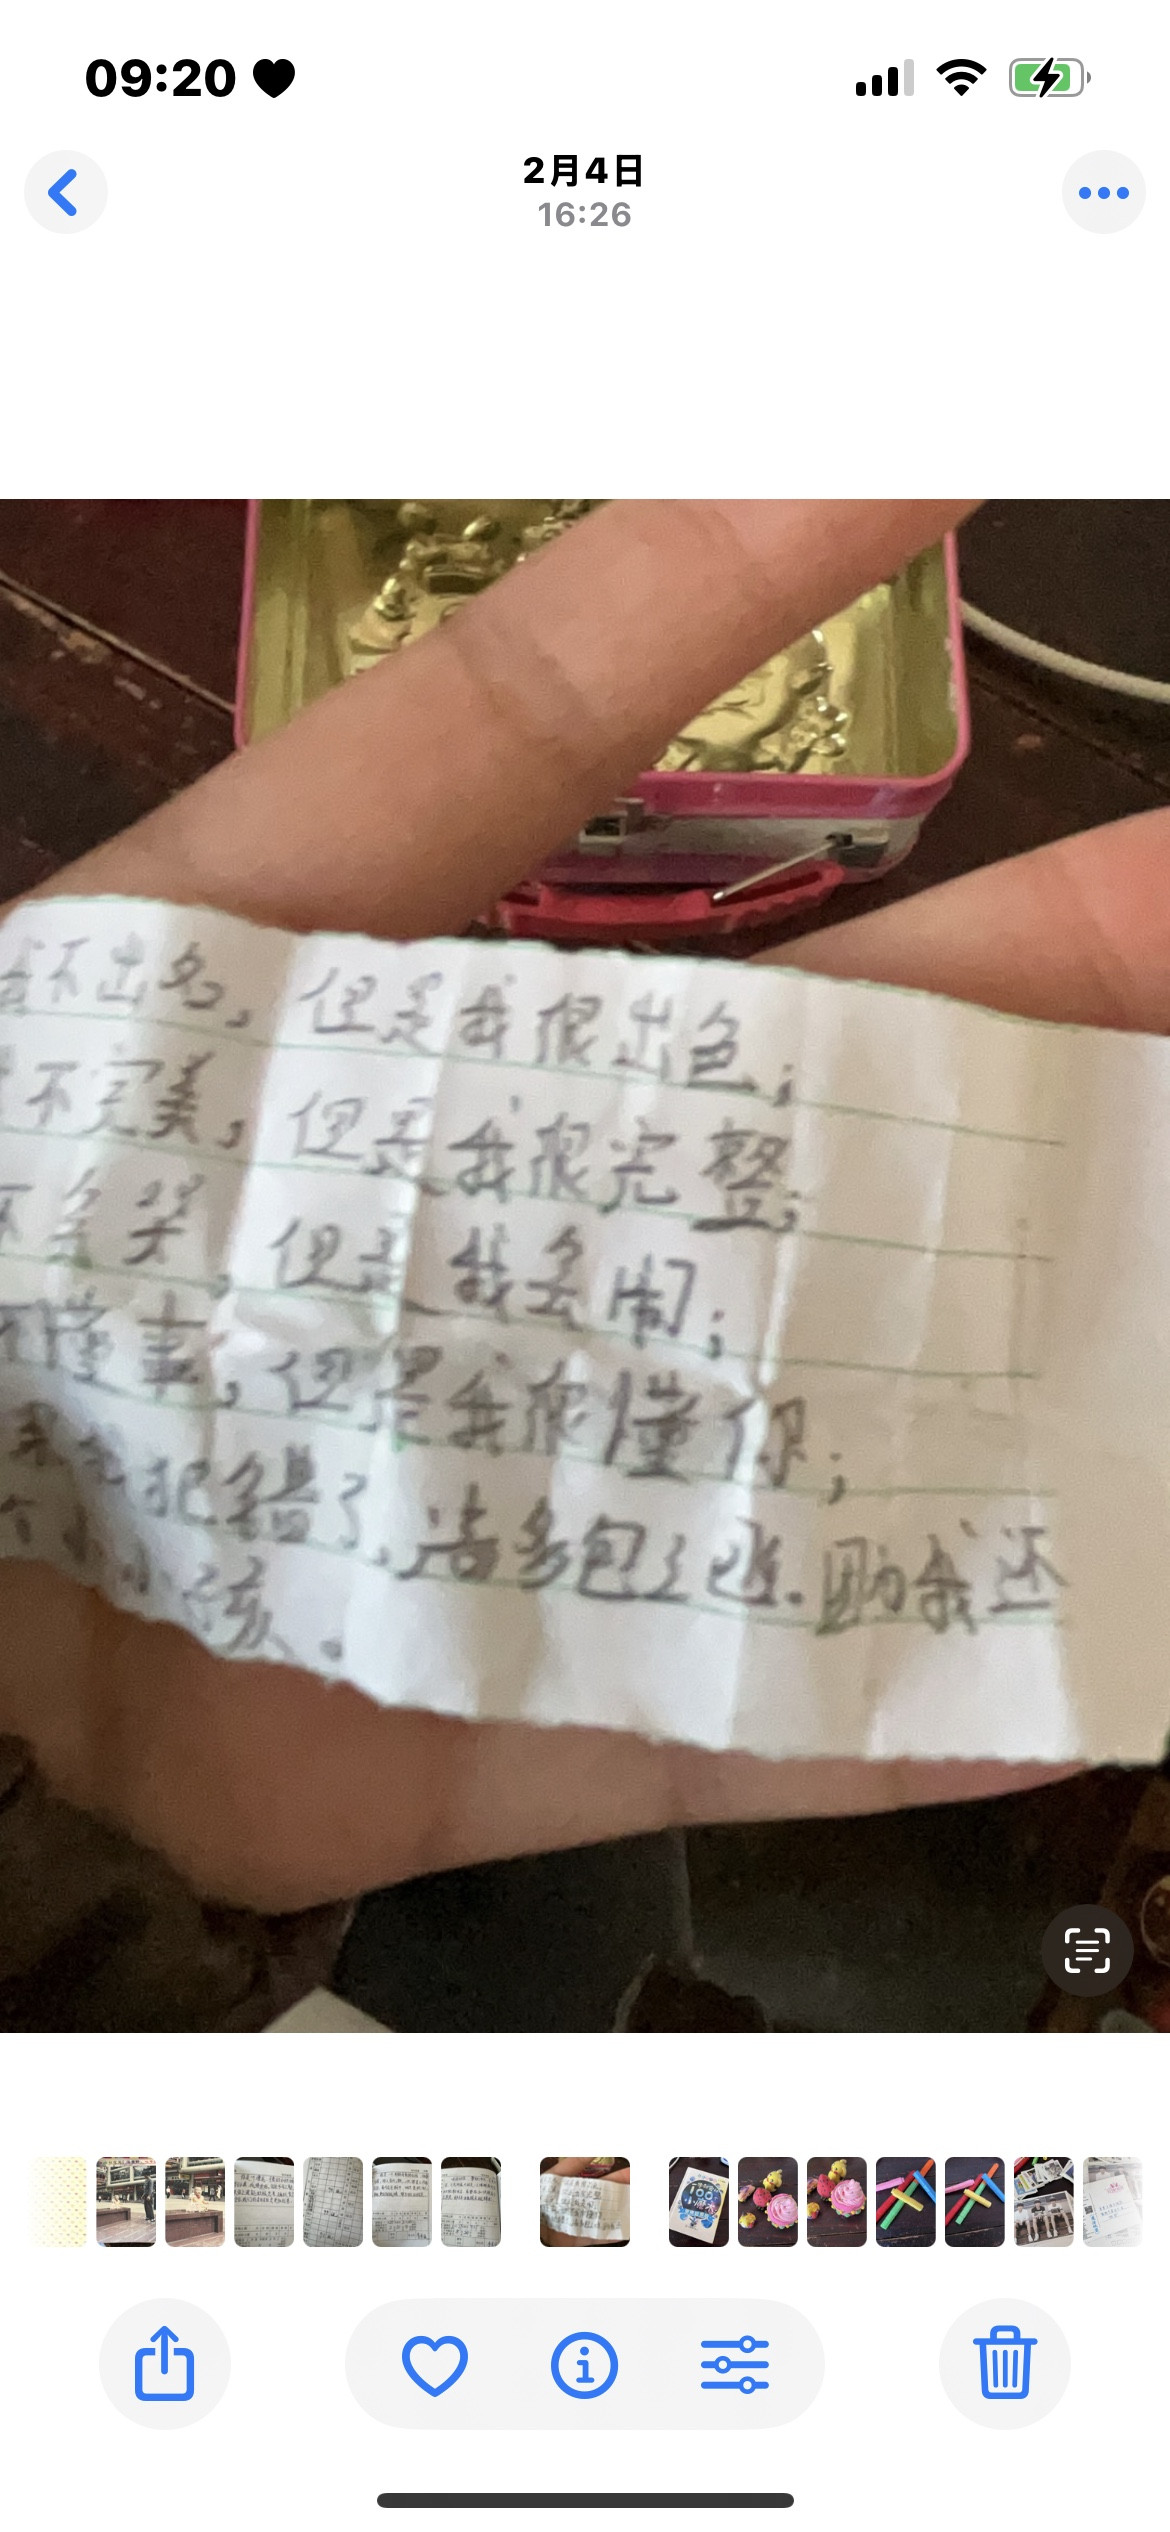 09:20
2月4日
16:26
不出名，但是我很出色；
不完美，但是我很完整；
不会笑，但是我会闹；
不懂事，但是我很懂你；
犯错了，请多包了涵.助我还
个小孩。